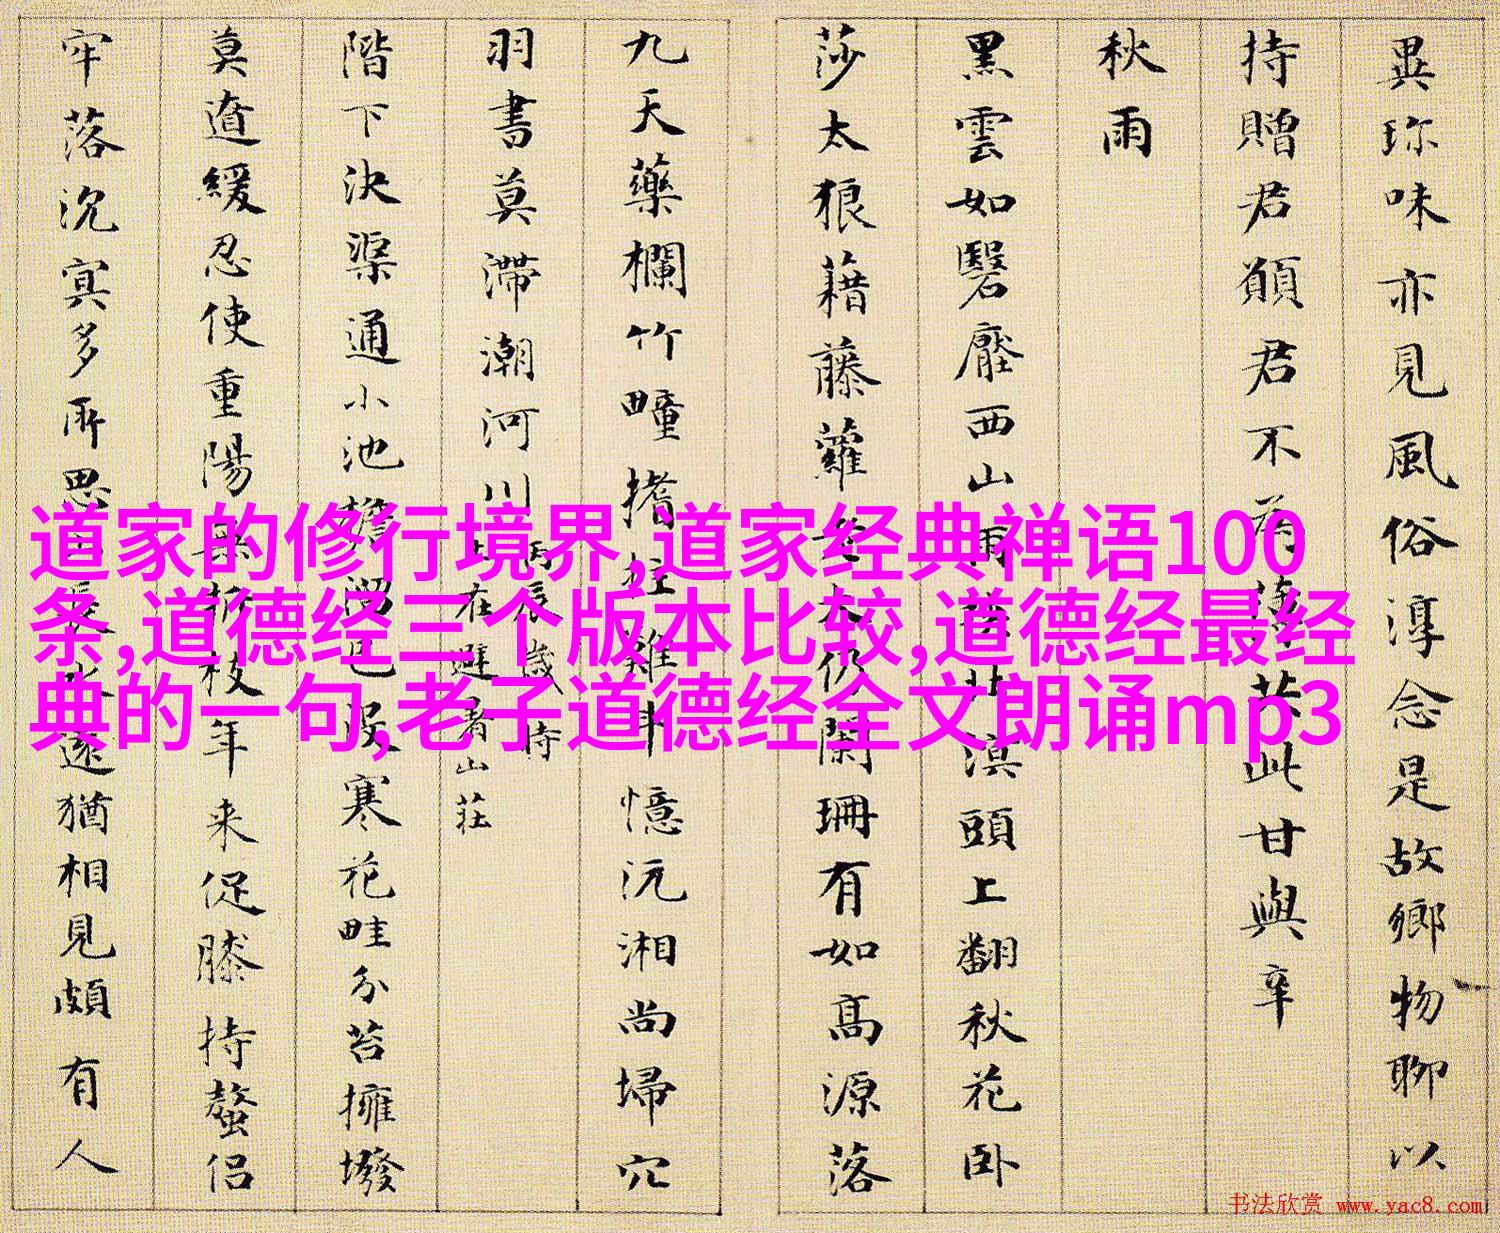 異珎味亦見風俗淳念是故鄉物聊以
持贈君願君不為
此甘與辛
秋雨
黑雲如鷖壓西山雨
溟頭上翻秋花卧
莎太狼藉藤蘿
太仍闌珊有如高源落
九天藥欄竹疃揩拄
斗憶沅湘尚埽穴
羽書莫滯潮河川
丙辰歲侍
在避暑山莊
階下決渠通小池
寒花畦分苔擁撥
莫遣緩忍使重陽
折枝年来促膝持螯侶
牢落沉冥多所思
遠猶相見頗有人
道家的修行境界,道家经典禅语100
条,道德经三个版本比较,道德经最经
典的一句,老子道德经全文朗诵mp3
书法欣赏 www.yac8.com